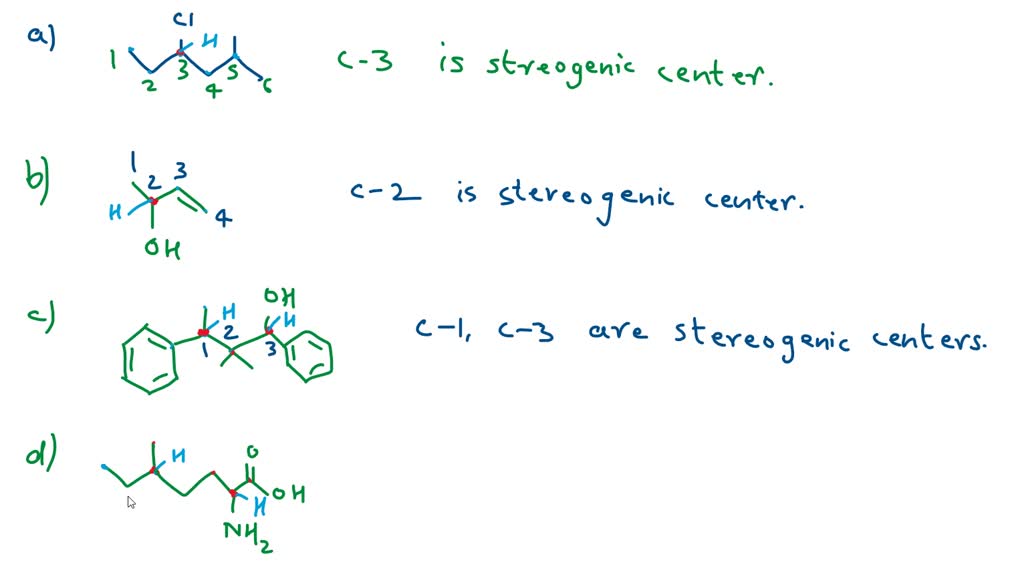 a)
Cl
H
1 2 3 4 5 6
C-3 is streogenic center.
b)
1 2 3 4
H
OH
C-2 is stereogenic center.
c)
OH
H H
1 2 3
C-1, C-3 are stereogenic centers.
d)
H
O
OH
H
NH2